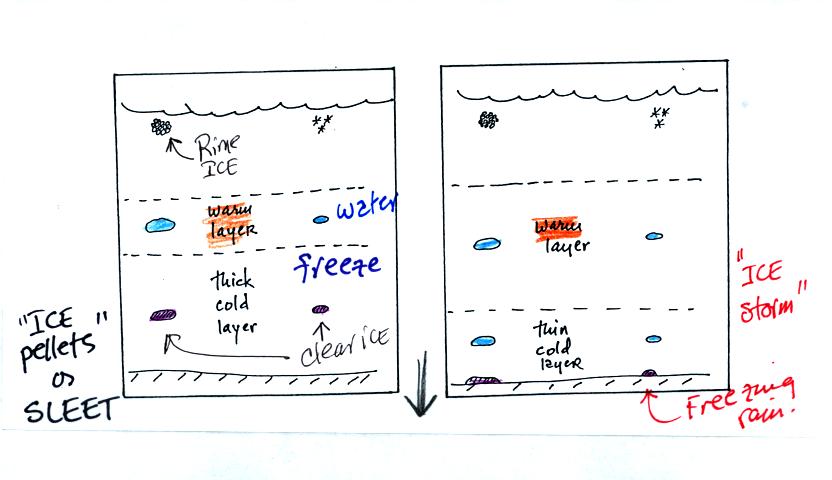 Rime
ICE
warm
layer
water
freeze
thick
cold
layer
clear ICE
"ICE
pellets"
or
SLEET
warm
layer
thin
cold
layer
"ICE
storm"
Freezing
rain.